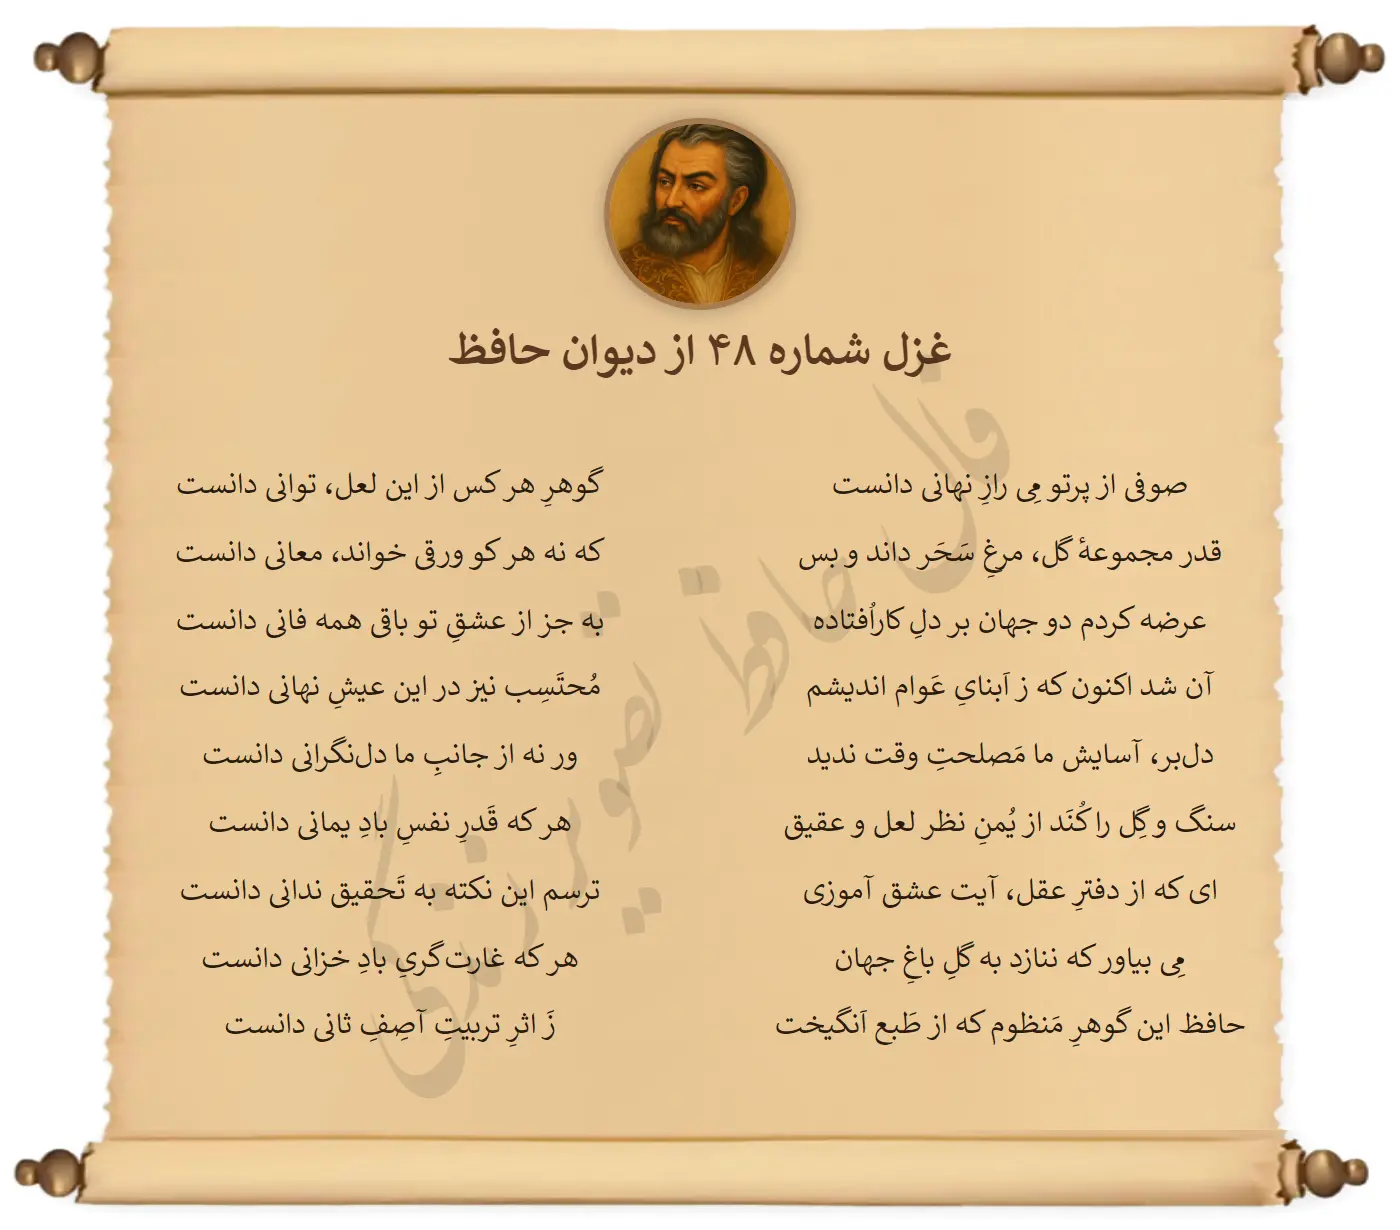 غزل شماره ۴۸ از دیوان حافظ
صوفی از پرتو مِی رازِ نهانی دانست
گوهرِ هر کس از این لعل، توانی دانست
قدر مجموعهٔ گل، مرغِ سَحَر داند و بس
که نه هر کو ورقی خواند، معانی دانست
عرضه کردم دو جهان بر دلِ کاراُفتاده
به جز از عشقِ تو باقی همه فانی دانست
آن شد اکنون که ز اَبنایِ عَوام اندیشم
مُحتَسِب نیز در این عیشِ نهانی دانست
دل‌بر، آسایش ما مَصلحتِ وقت ندید
ور نه از جانبِ ما دل‌نگرانی دانست
سنگ و گِل را کُنَد از یُمنِ نظر لعل و عقیق
هر که قَدرِ نفسِ بادِ یمانی دانست
ای که از دفترِ عقل، آیت عشق آموزی
ترسم این نکته به تَحقیق ندانی دانست
مِی بیاور که ننازد به گلِ باغِ جهان
هر که غارت‌گریِ بادِ خزانی دانست
حافظ این گوهرِ مَنظوم که از طَبع اَنگیخت
زَ اثرِ تربیتِ آصِفِ ثانی دانست
فال حافظ تصویر زندگی